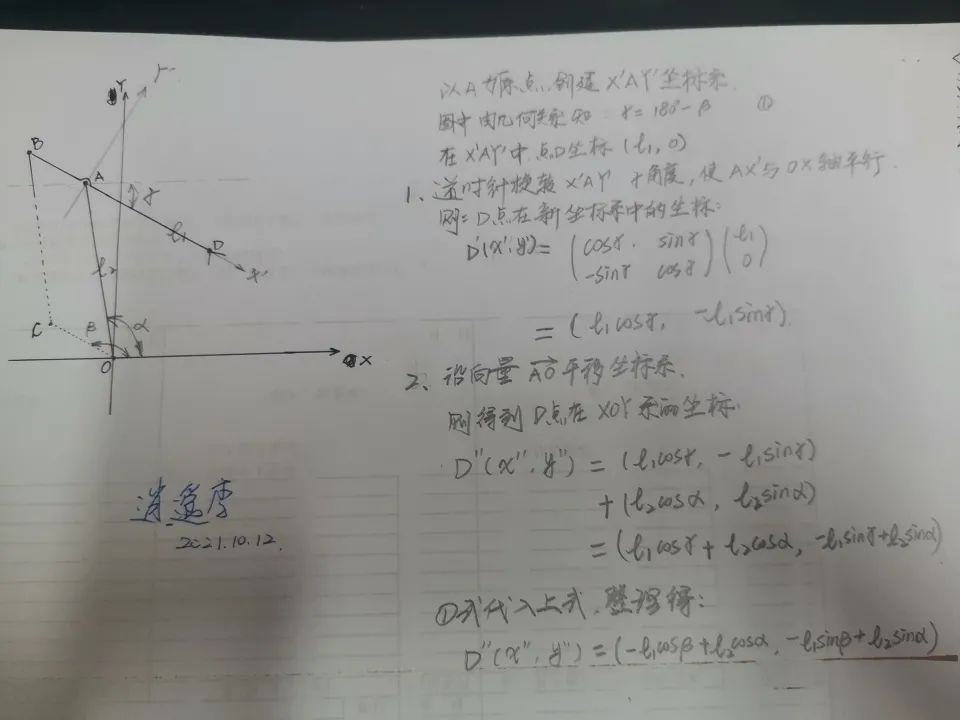 以A为原点,创建X'AY'坐标系.
图中由几何关系知: γ=180°-β ①
在X'AY'中,点D坐标(l₁,0)
1、逆时针旋转X'AY' γ角度,使AX'与OX轴平行.
则:D点在新坐标系中的坐标:
D'(x',y')= (cosγ, sinγ -sinγ cosγ)(l₁ 0)
=(l₁cosγ, -l₁sinγ).
2、沿向量AO平移坐标系.
则得到D点在XOY系的坐标.
D''(x'',y'')=(l₁cosγ, -l₁sinγ)
+(l₂cosα, l₂sinα)
=(l₁cosγ+l₂cosα, -l₁sinγ+l₂sinα)
①式代入上式,整理得:
D''(x'',y'')=(-l₁cosβ+l₂cosα, -l₁sinβ+l₂sinα)
Y'
Y
B
A
γ
l₁
D
X'
l₂
C
β
α
O
X
逍遥李
2021.10.12.